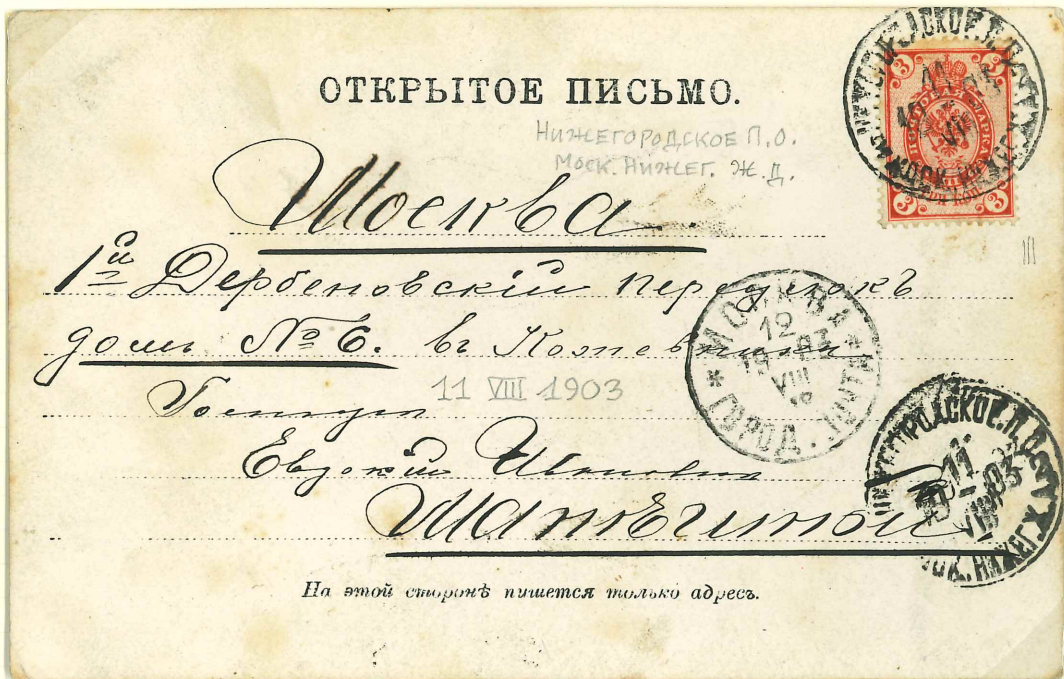 ОТКРЫТОЕ ПИСЬМО.
НИЖЕГОРОДСКОЕ П.О.
МОСК. НИЖЕГ. Ж.Д.
Москва
1й Дербеновский переулокъ
домъ № 6. въ Кожевникахъ
11 VIII 1903
Госпоже
Евдокии Ивановне
МОСКВА
12
VIII
ГОРОД. ПОЧТА
НИЖЕГОРОДСКОЕ П.О.
11
VIII
03
МОСК. НИЖЕГ. Ж.
На этой сторонѣ пишется только адресъ.